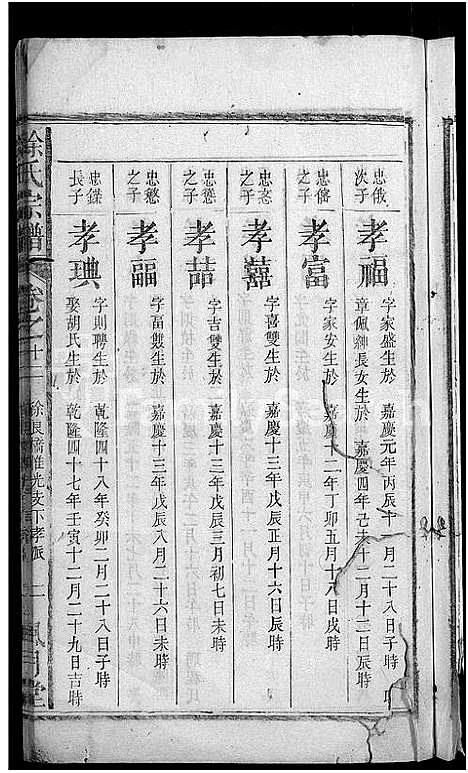 忠俄次子
孝福
字家盛生於 嘉慶元年丙辰十 月二十八日子時
章佩紳長女生於 嘉慶四年己未十二月十二日辰時
忠僐之子
孝富
字家安生於 嘉慶十二年丁卯五月十八日戌時
之子
孝囍
字喜雙生於 嘉慶十三年戊辰正月十六日辰時
之子
孝喆
字吉雙生於 嘉慶十三年戊辰三月初七日未時
之子
孝
字畐雙生於 嘉慶十三年戊辰八月二十六日未時
忠鑅長子
孝琠
字則聘生於 乾隆四十八年癸卯二月二十八日子時
娶胡氏生於 乾隆四十七年壬寅十二月二十九日吉時
徐氏宗譜
卷之十二
徐良 惟光支下孝派
二
風月堂